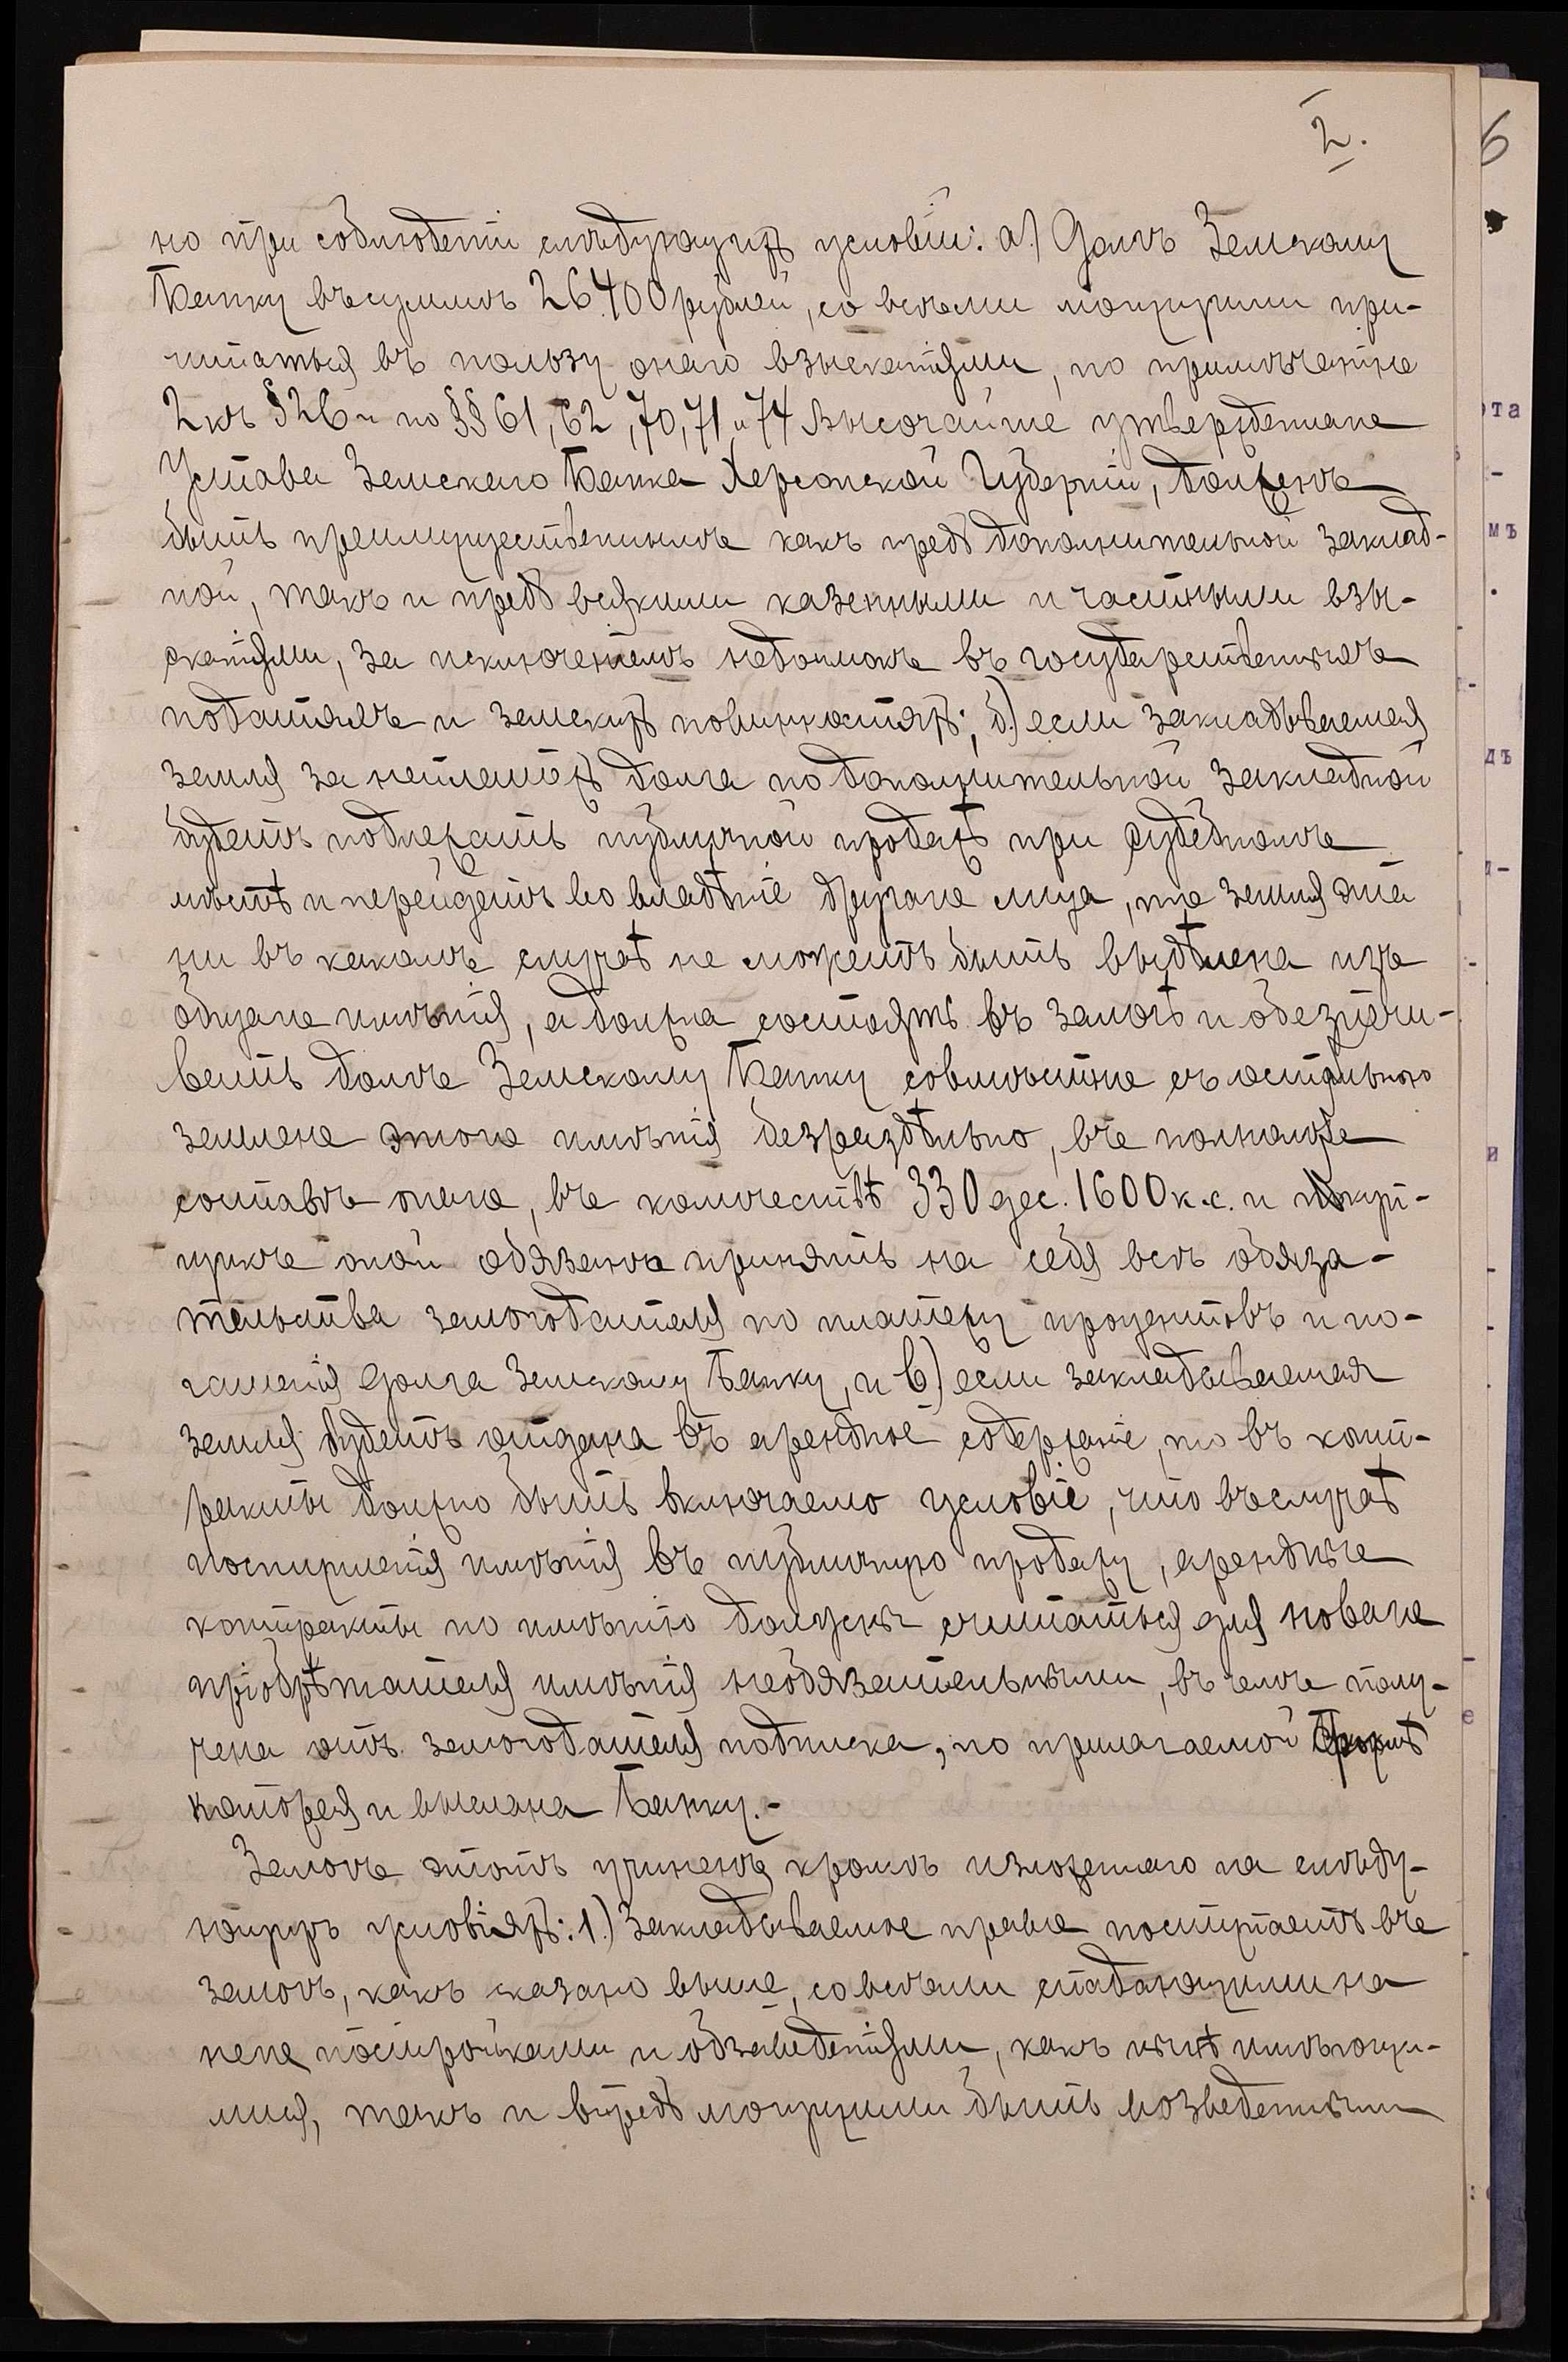 2.
6
но при соблюденіи слѣдующихъ условій: а) Долгъ Земскому
Банку въ суммѣ 26400 рублей, со всѣми могущими при-
читаться въ пользу онаго взысканіями, по примѣчанію
2 къ § 26 и по §§ 61, 62, 70, 71 и 74 Высочайше утвержденнаго
Устава Земскаго Банка Херсонской Губерніи, долженъ
быть преимущественнымъ какъ предъ дополнительной заклад-
ной, такъ и предъ всякими казенными и частными взы-
сканіями, за исключеніемъ недоимокъ въ государственныхъ
податяхъ и земскихъ повинностяхъ; б) если закладываемая
земля за неплатежъ долга по дополнительной закладной
будетъ подлежать публичной продажѣ при судебномъ
мѣстѣ и перейдетъ во владѣніе другого лица, то земля эта
ни въ какомъ случаѣ не можетъ быть выдѣлена изъ
общаго имѣнія, а должна состоять въ залогѣ и обезпечи-
вать долгъ Земскому Банку совмѣстно съ остальною
землею этого имѣнія безраздѣльно, въ полномъ
составѣ онаго, въ количествѣ 330 дес. 1600 к.с. и покуп-
щикъ оной обязанъ принять на себя всѣ обяза-
тельства залогодателя по платежу процентовъ и по-
гашенія долга Земскому Банку, и в) если закладываемая
земля будетъ отдана въ арендное содержаніе, то въ конт-
ракты должно быть включаемо условіе, что въ случаѣ
поступленія имѣнія въ публичную продажу, арендные
контракты по имѣнію должны считаться для новаго
пріобрѣтателя имѣнія необязательными, въ чемъ полу-
чена отъ залогодателя подписка, по прилагаемой формѣ
которая и выслана Банку.-
Залогъ этотъ учиненъ кромѣ изложеннаго на слѣду-
ющихъ условіяхъ: 1.) Закладываемое право поступаетъ въ
залогъ, какъ сказано выше, со всѣми спадающими на
него постройками и обзаведеніями, какъ нынѣ имѣющи-
мися, такъ и впредь могущими быть возведенными
ота
-
мъ
дъ
и
е